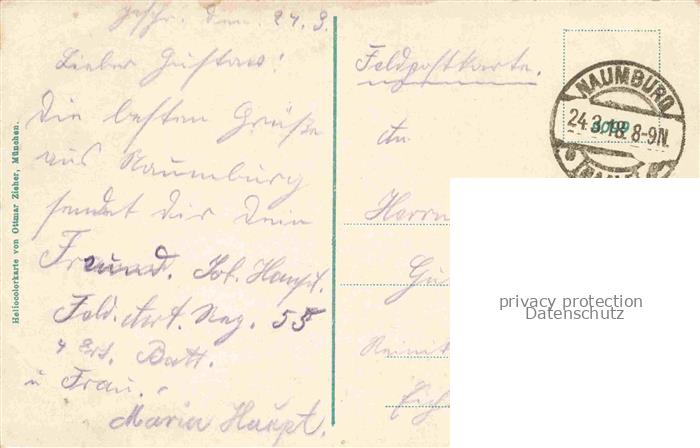 geschr. den. 24. 3.
Lieber Gustav!
Die besten Grüße
aus Naumburg
sendet dir Dein
Freund. Joh. Haupt.
Feld. Art. Reg. 55
4 Ers. Batt.
u Frau.
Maria Haupt.
Heliocolorkarte von Ottmar Zieher, München.
Feldpostkarte.
NAUMBURG
24.3.18. 8-9N.
An
Herrn
privacy protection
Datenschutz